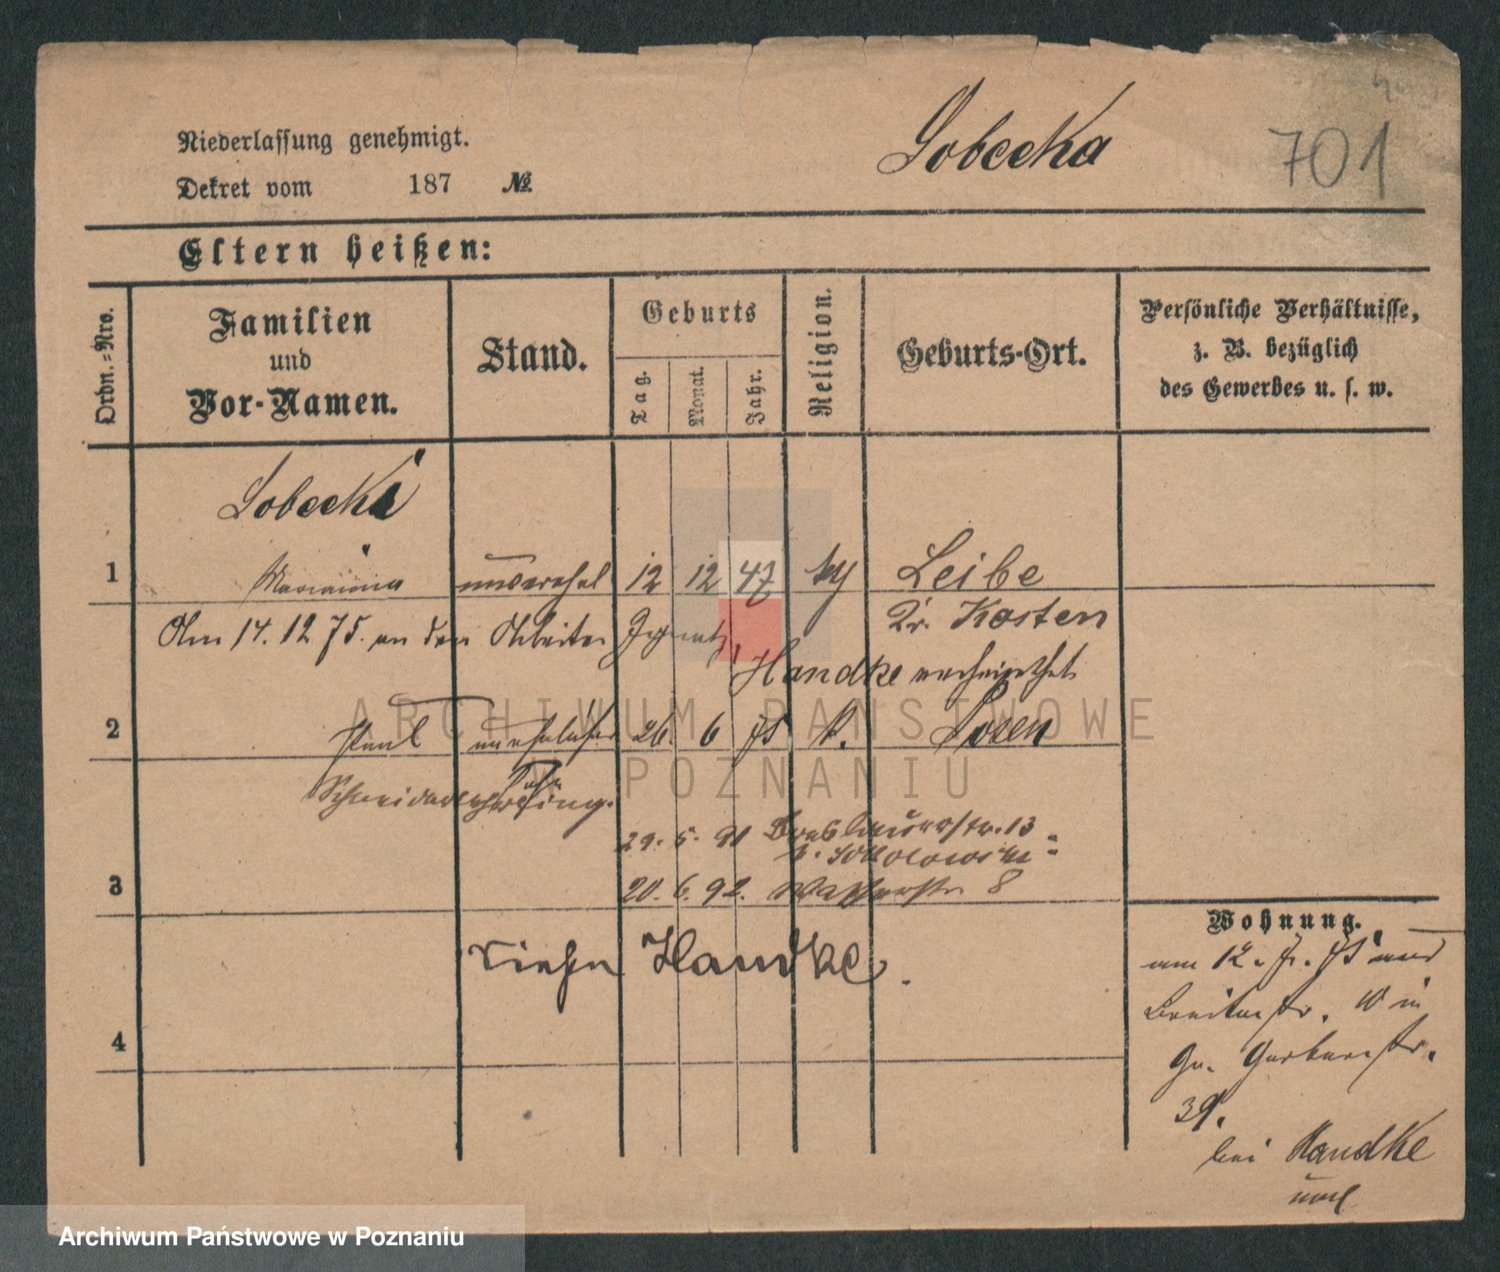 Sobecka 701
Niederlassung genehmigt.
Dekret vom 187 №
Eltern heißen:
Ordn.=Nro.
Familien
und
Vor-Namen.
Stand.
Geburts
Tag.
Monat.
Jahr.
Religion.
Geburts-Ort.
Persönliche Verhältnisse,
z. B. bezüglich
des Gewerbes u. s. w.
Sobecka
1 Marianna unverehel 12 12 47 Leibe
Kr. Kosten
Am 14. 12 75. an den Arbeiter Ignatz
Handke verheirathet
2 Paul unehelicher 26. 6 75 k. Posen
Schneiderlehrling.
29. 5. 91 Breslauerstr. 13
b. Sokolowski
3 20. 6. 92. Wasserstr. 8
siehe Handke.
4
Wohnung.
am 12. 75 aus
Breitestr. 10 in
Gr. Gerberstr.
39.
bei Handke
ARCHIWUM PAŃSTWOWE
W POZNANIU
Archiwum Państwowe w Poznaniu